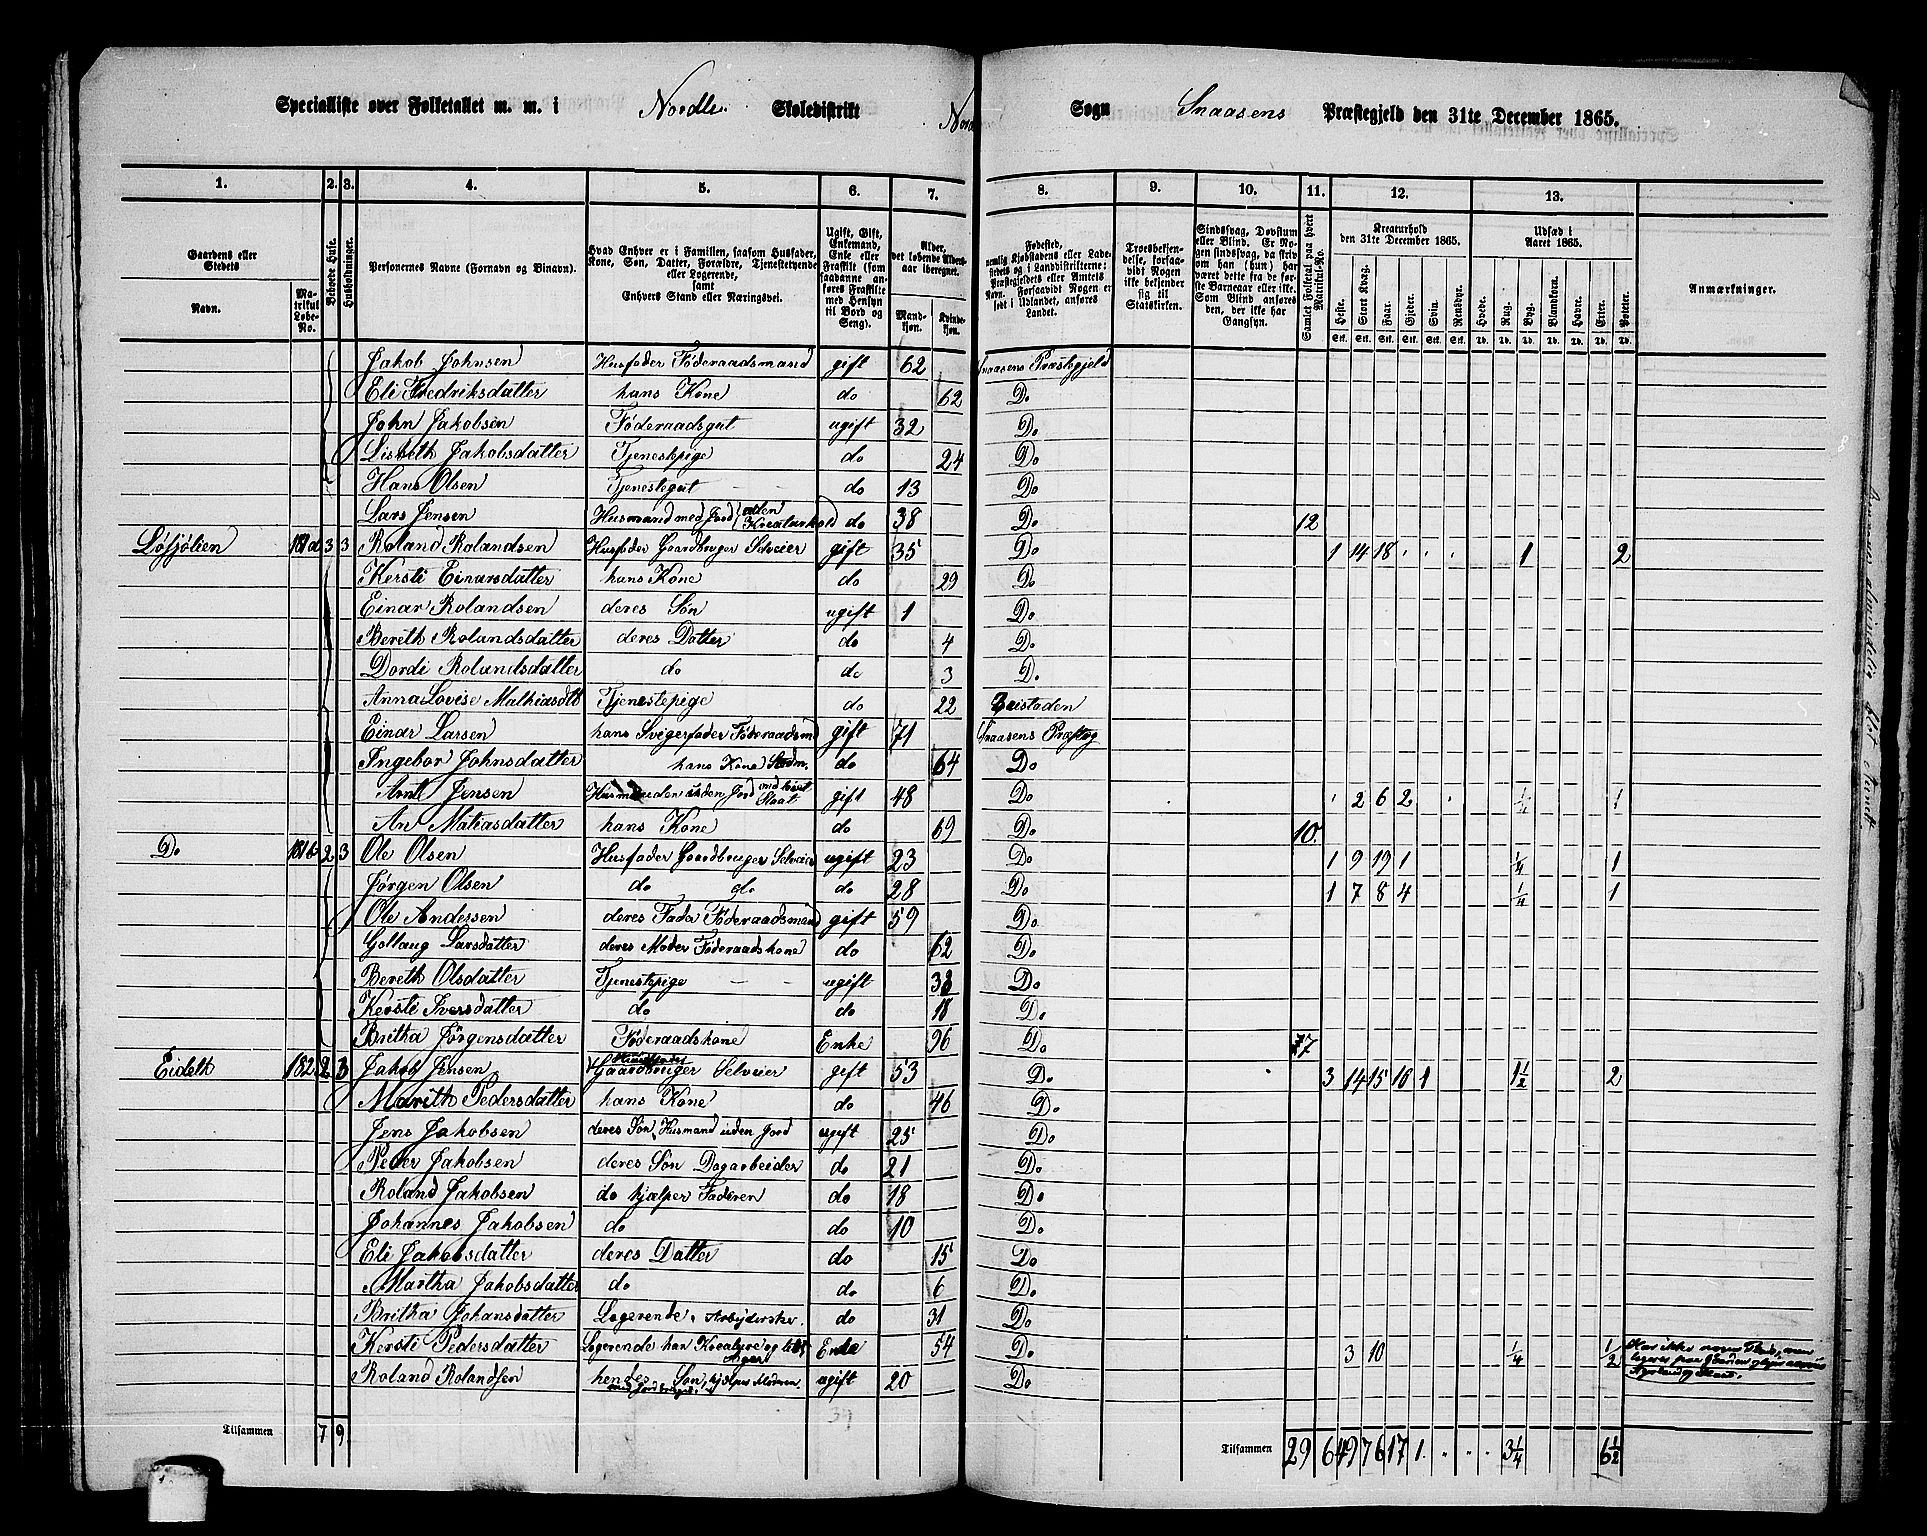 Specialliste over Folketallet m. m. i Nordli Skoledistrikt Nord Sogn Snaasens Præstegjeld den 31te December 1865.
1. 2. 3. 4. 5. 6. 7. 8. 9. 10. 11. 12. 13.
Gaardens eller Stedets
Navn.
Matrikul Løbe-No.
Beboede Huse.
Husholdninger.
Personernes Navne (Fornavn og Binavn).
Hvad Enhver er i Familien, saasom Husfader, Kone, Søn, Datter, Forældre, Tjenestetyende eller Logerende, samt Enhvers Stand eller Næringsvei.
Ugift, Gift, Enkemand, Enke eller Fraskilt (som saadanne anføres Fraskilte med Hensyn til Bord og Seng).
Alder, det løbende Alders-aar iberegnet.
Mandkjøn. Kvindekjøn.
Fødested,
Troesbekjendelse, forsaavidt Nogen ikke bekjender sig til Statskirken.
Sindssvag, Døvstum eller Blind.
Samlet Folketal paa hvert Matrikul-No.
Kreaturhold den 31te December 1865.
Heste. Stort Kvæg. Faar. Gjeder. Svin. Rensdyr.
Udsæd i Aaret 1865.
Hvede. Rug. Byg. Blandkorn. Havre. Erter. Poteter.
Anmærkninger.
Jakob Johnsen Husfader Føderaadsmand gift 62 Snaasens Præstegjeld
Eli Fredriksdatter hans Kone do 62 Do
John Jakobsen Føderaadsgut ugift 32 Do
Lisbeth Jakobsdatter Tjenestepige do 24 Do
Hans Olsen Tjenestegut do 13 Do
Lars Jensen Husmand med Jord uden Kreaturhold do 38 Do 12
Løfjølien 181a 3 3 Roland Rolandsen Husfader Gaardbruger Selveier gift 35 Do 1 14 18 1 2
Kersti Einarsdatter hans Kone do 29 Do
Einar Rolandsen deres Søn ugift 1 Do
Bereth Rolandsdatter deres Datter do 4 Do
Dordi Rolandsdatter do do 3 Do
Anna Lovise Mathiasdt Tjenestepige do 22 Beistaden
Einar Larsen hans Svigerfader Føderaadsmd gift 71 Snaasens Præsteg
Ingebor Johnsdatter hans Kone do 64 Do
Arnt Jensen Husmand uden Jord gift 48 Do 2 6 2 1/4 1
An Matiasdatter hans Kone do 69 Do 10
Do 181b 2 3 Ole Olsen Husfader Gaardbruger Selveier ugift 23 Do 1 9 19 1 1/4 1
Jørgen Olsen do do do 28 Do 1 7 8 4 1/4 1
Ole Andersen deres Fader Føderaadsmand gift 59 Do
Gollaug Larsdatter deres Moder Føderaadskone do 62 Do
Bereth Olsdatter Tjenestepige ugift 38 Do
Kersti Iversdatter do do 18 Do
Britha Jørgensdatter Føderaadskone Enke 96 Do 7
Eideth 182 2 3 Jakob Jensen Gaardbruger Selveier gift 53 Do 3 14 15 10 1 1 1/2 2
Marith Pedersdatter hans Kone do 46 Do
Jens Jakobsen deres Søn, Husmand uden Jord ugift 25 Do
Peder Jakobsen deres Søn Dagarbeider do 21 Do
Roland Jakobsen do hjælper Faderen do 18 Do
Johannes Jakobsen do do 10 Do
Eli Jakobsdatter deres Datter do 15 Do
Martha Jakobsdatter do do 6 Do
Britha Johansdatter Logerende, Arbejderske. do 31 Do
Kersti Pedersdatter Logerende har Kreature og Enke 54 Do 3 10 1/4 1/2
Roland Rolandsen hendes Søn, hjælper Moderen ugift 20 Do
Tilsammen 7 9
Tilsammen 29 6 49 76 17 1 3 1/4 6 1/2